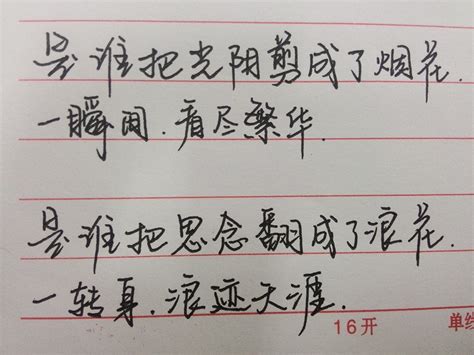 是谁把光阴剪成了烟花.
一瞬间.看尽繁华.
是谁把思念翻成了浪花.
一转身.浪迹天涯.
16开 单线